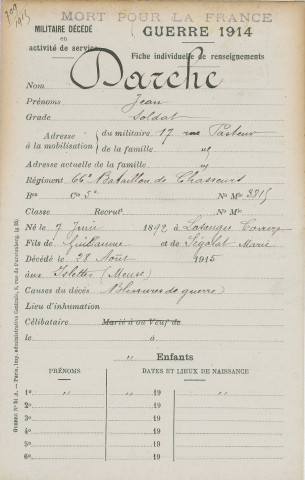 709
1915
MORT POUR LA FRANCE
MILITAIRE DÉCÉDÉ
en
activité de service
GUERRE 1914
Fiche individuelle de renseignements
Nom Darche
Prénoms Jean
Grade Soldat
Adresse à la mobilisation du militaire 17 rue Pasteur
de la famille "
Adresse actuelle de la famille "
Régiment 66e Bataillon de Chasseurs
Bon Cie 5e No Mle 3815
Classe Recrut No Mle
Né le 7 Juin 1892 à Corrèze
Fils de Guillaume et de Marie
Décédé le 28 Août 1915
aux Islettes (Meuse)
Causes du décès Blessures de guerre
Lieu d'inhumation
Célibataire Marié à ou Veuf de
le à
" Enfants
PRÉNOMS DATES ET LIEUX DE NAISSANCE
1o " 19 "
2o 19
3o 19
4o 19
5o 19
6o 19